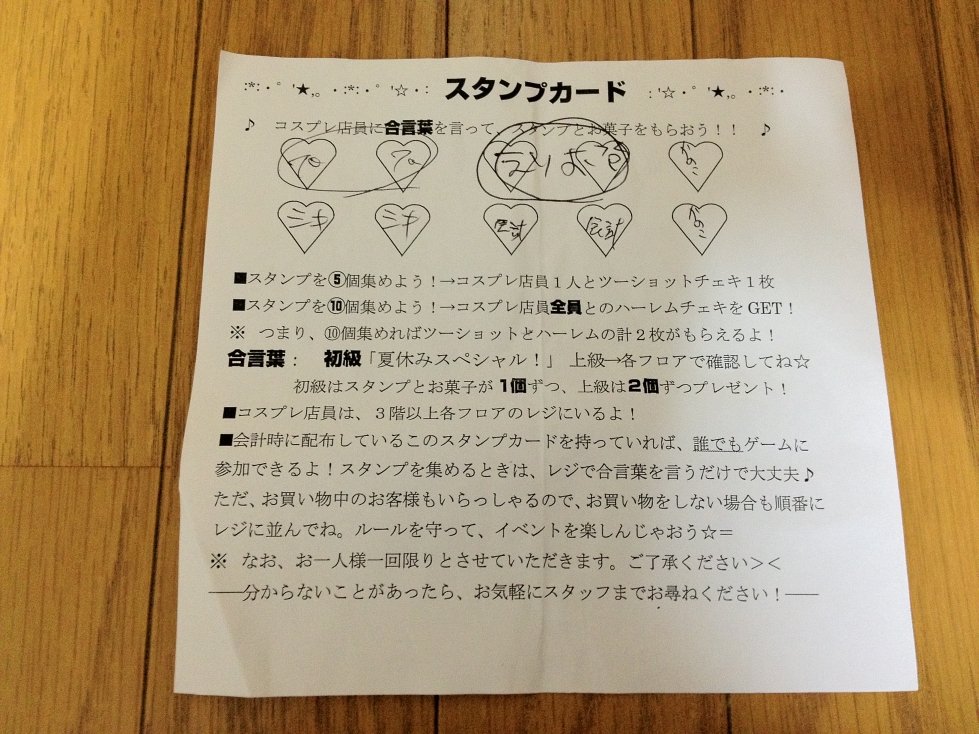 :*:・°'★,。・:*:・°'☆・: スタンプカード :'☆・°'★,。・:*:・
♪ コスプレ店員に合言葉を言って、スタンプとお菓子をもらおう！！ ♪
かのこ
ミキ ミキ 会計 会計 かのこ
■スタンプを⑤個集めよう！→コスプレ店員１人とツーショットチェキ１枚
■スタンプを⑩個集めよう！→コスプレ店員全員とのハーレムチェキをGET！
※ つまり、⑩個集めればツーショットとハーレムの計２枚がもらえるよ！
合言葉： 初級「夏休みスペシャル！」 上級→各フロアで確認してね☆
初級はスタンプとお菓子が1個ずつ、上級は2個ずつプレゼント！
■コスプレ店員は、３階以上各フロアのレジにいるよ！
■会計時に配布しているこのスタンプカードを持っていれば、誰でもゲームに
参加できるよ！スタンプを集めるときは、レジで合言葉を言うだけで大丈夫♪
ただ、お買い物中のお客様もいらっしゃるので、お買い物をしない場合も順番に
レジに並んでね。ルールを守って、イベントを楽しんじゃおう☆＝
※ なお、お一人様一回限りとさせていただきます。ご了承ください＞＜
――分からないことがあったら、お気軽にスタッフまでお尋ねください！――